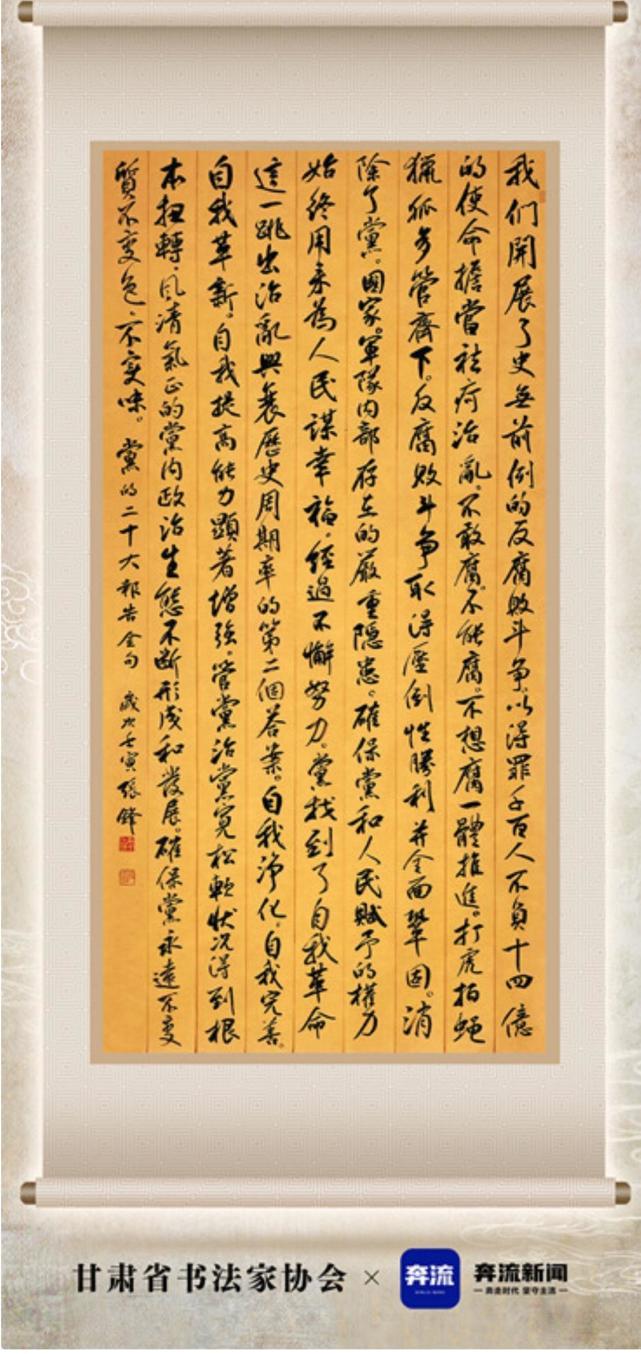 我们開展了史無前例的反腐敗斗争。以得罪千百人不負十四億
的使命擔當祛疴治亂。不敢腐。不能腐。不想腐一體推進。打虎拍蠅
獵狐多管齊下。反腐敗斗争取得壓倒性勝利并全面鞏固。消
除了黨。國家。軍隊内部存在的嚴重隱患。確保黨和人民賦予的權力
始終用來為人民謀幸福。經過不懈努力。黨找到了自我革命
這一跳出治亂興衰歷史周期率的第二個答案。自我净化。自我完善。
自我革新。自我提高能力顯著增强。管黨治黨寬松軟狀况得到根
本扭轉。風清氣正的黨内政治生態不斷形成和發展。確保黨永遠不變
質。不變色。不變味。 黨的二十大報告金句 歲次壬寅 張鋒
甘肃省书法家协会 × 奔流 奔流新闻
奔走时代 坚守主流